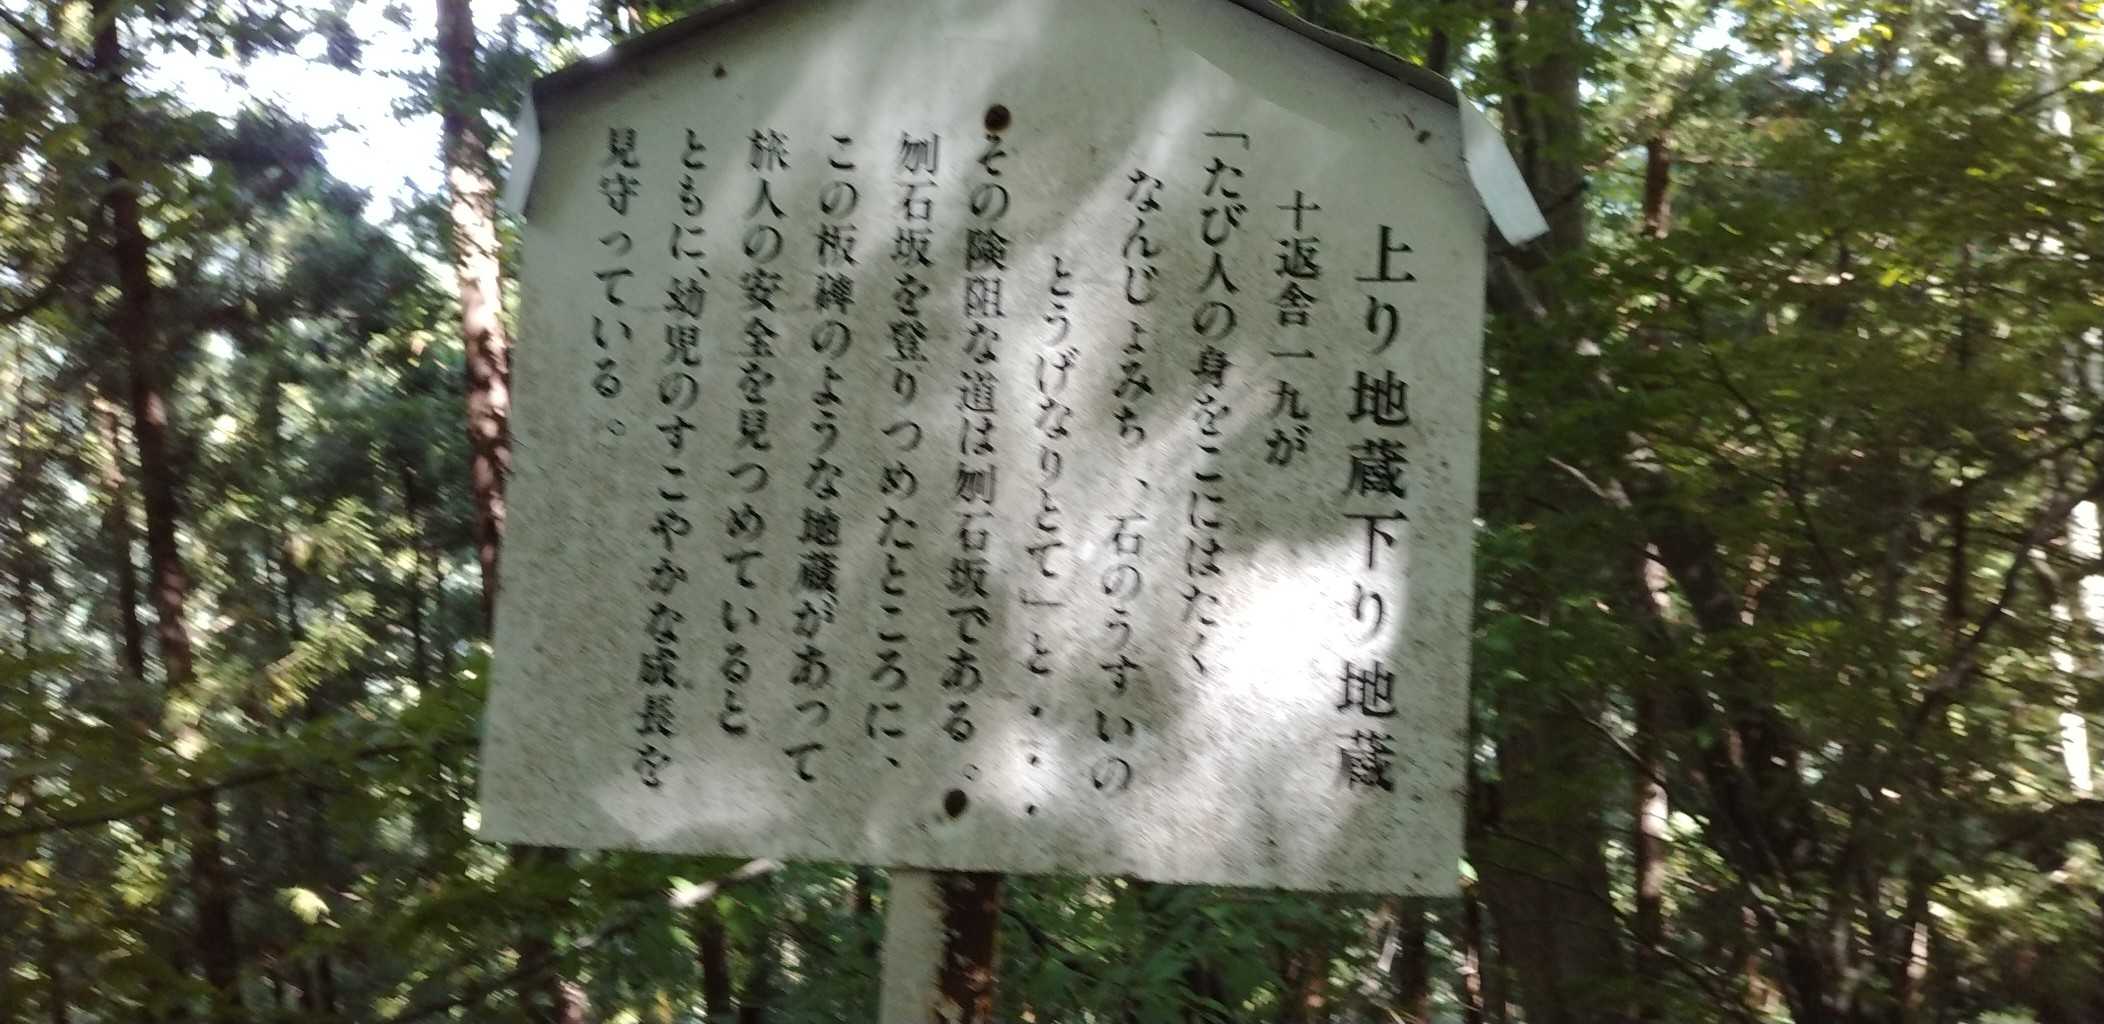 上り地蔵下り地蔵
十返舎一九が
「たび人の身をこにはたく
なんじょみち、石のうすいの
とうげなりとて」と・・・
その険阻な道は刎石坂である。
刎石坂を登りつめたところに、
この板碑のような地蔵があって
旅人の安全を見つめていると
ともに、幼児のすこやかな成長を
見守っている。